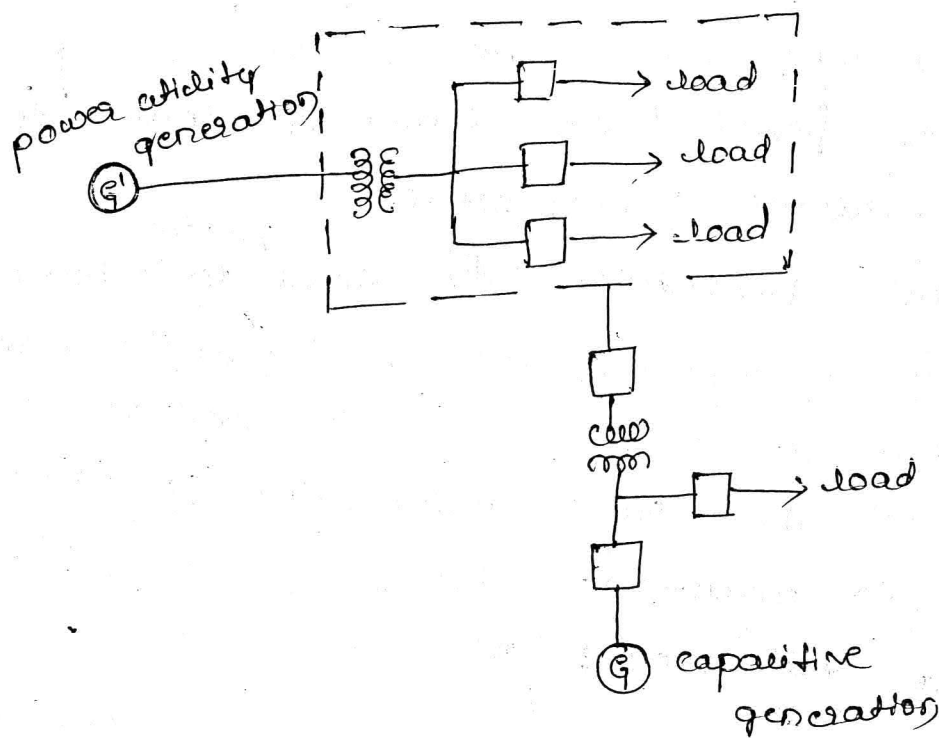 power utility
generation
G'
load
load
load
load
G
capacitive
generation